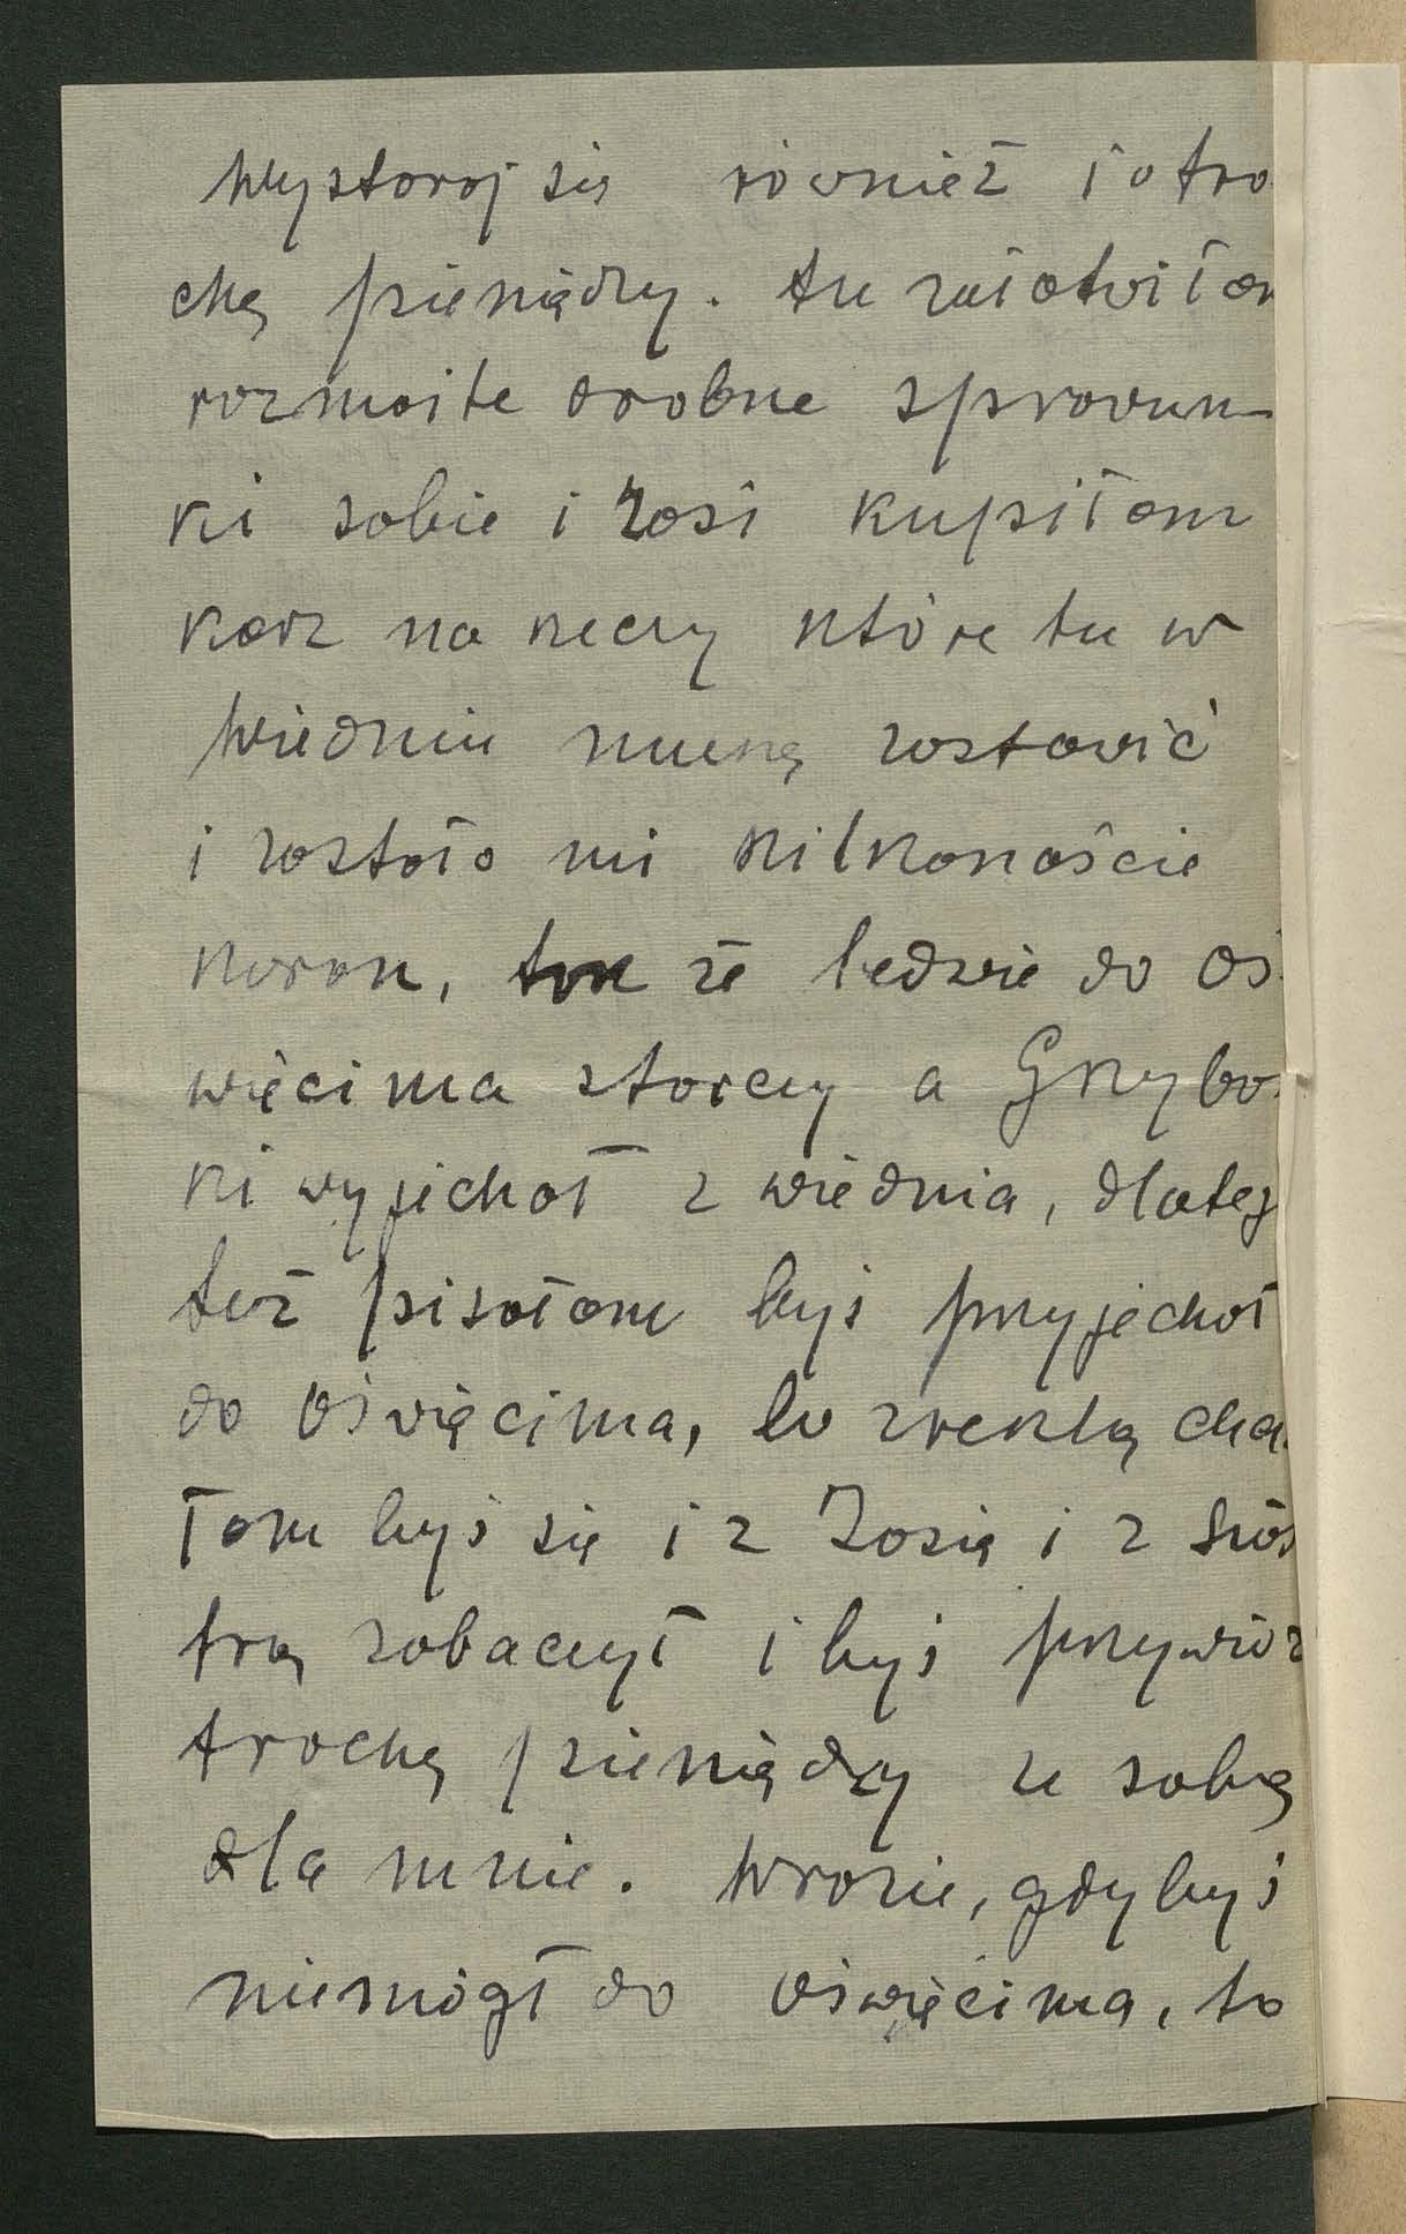 Wystaraj się również i o tro
chę pieniędzy. Tu załatwiłam
rozmaite drobne sprawun-
ki sobie i Zosi kupiłam
kosz na rzeczy które tu w
Wiedniu muszę zostawić
i zostało mi kilkanaście
koron, tak że ledwie do Oś-
więcima starczy a Grzybo-
ki wyjechał z Wiednia, dlateg
też pisałam byś przyjechał
do Oświęcima, bo zresztą chcia
łam byś się i z Zosią i z Sios
trą zobaczył i byś przywiózł
trochę pieniędzy ze sobą
dla mnie. W razie, gdybyś
niemógł do Oświęcima, to